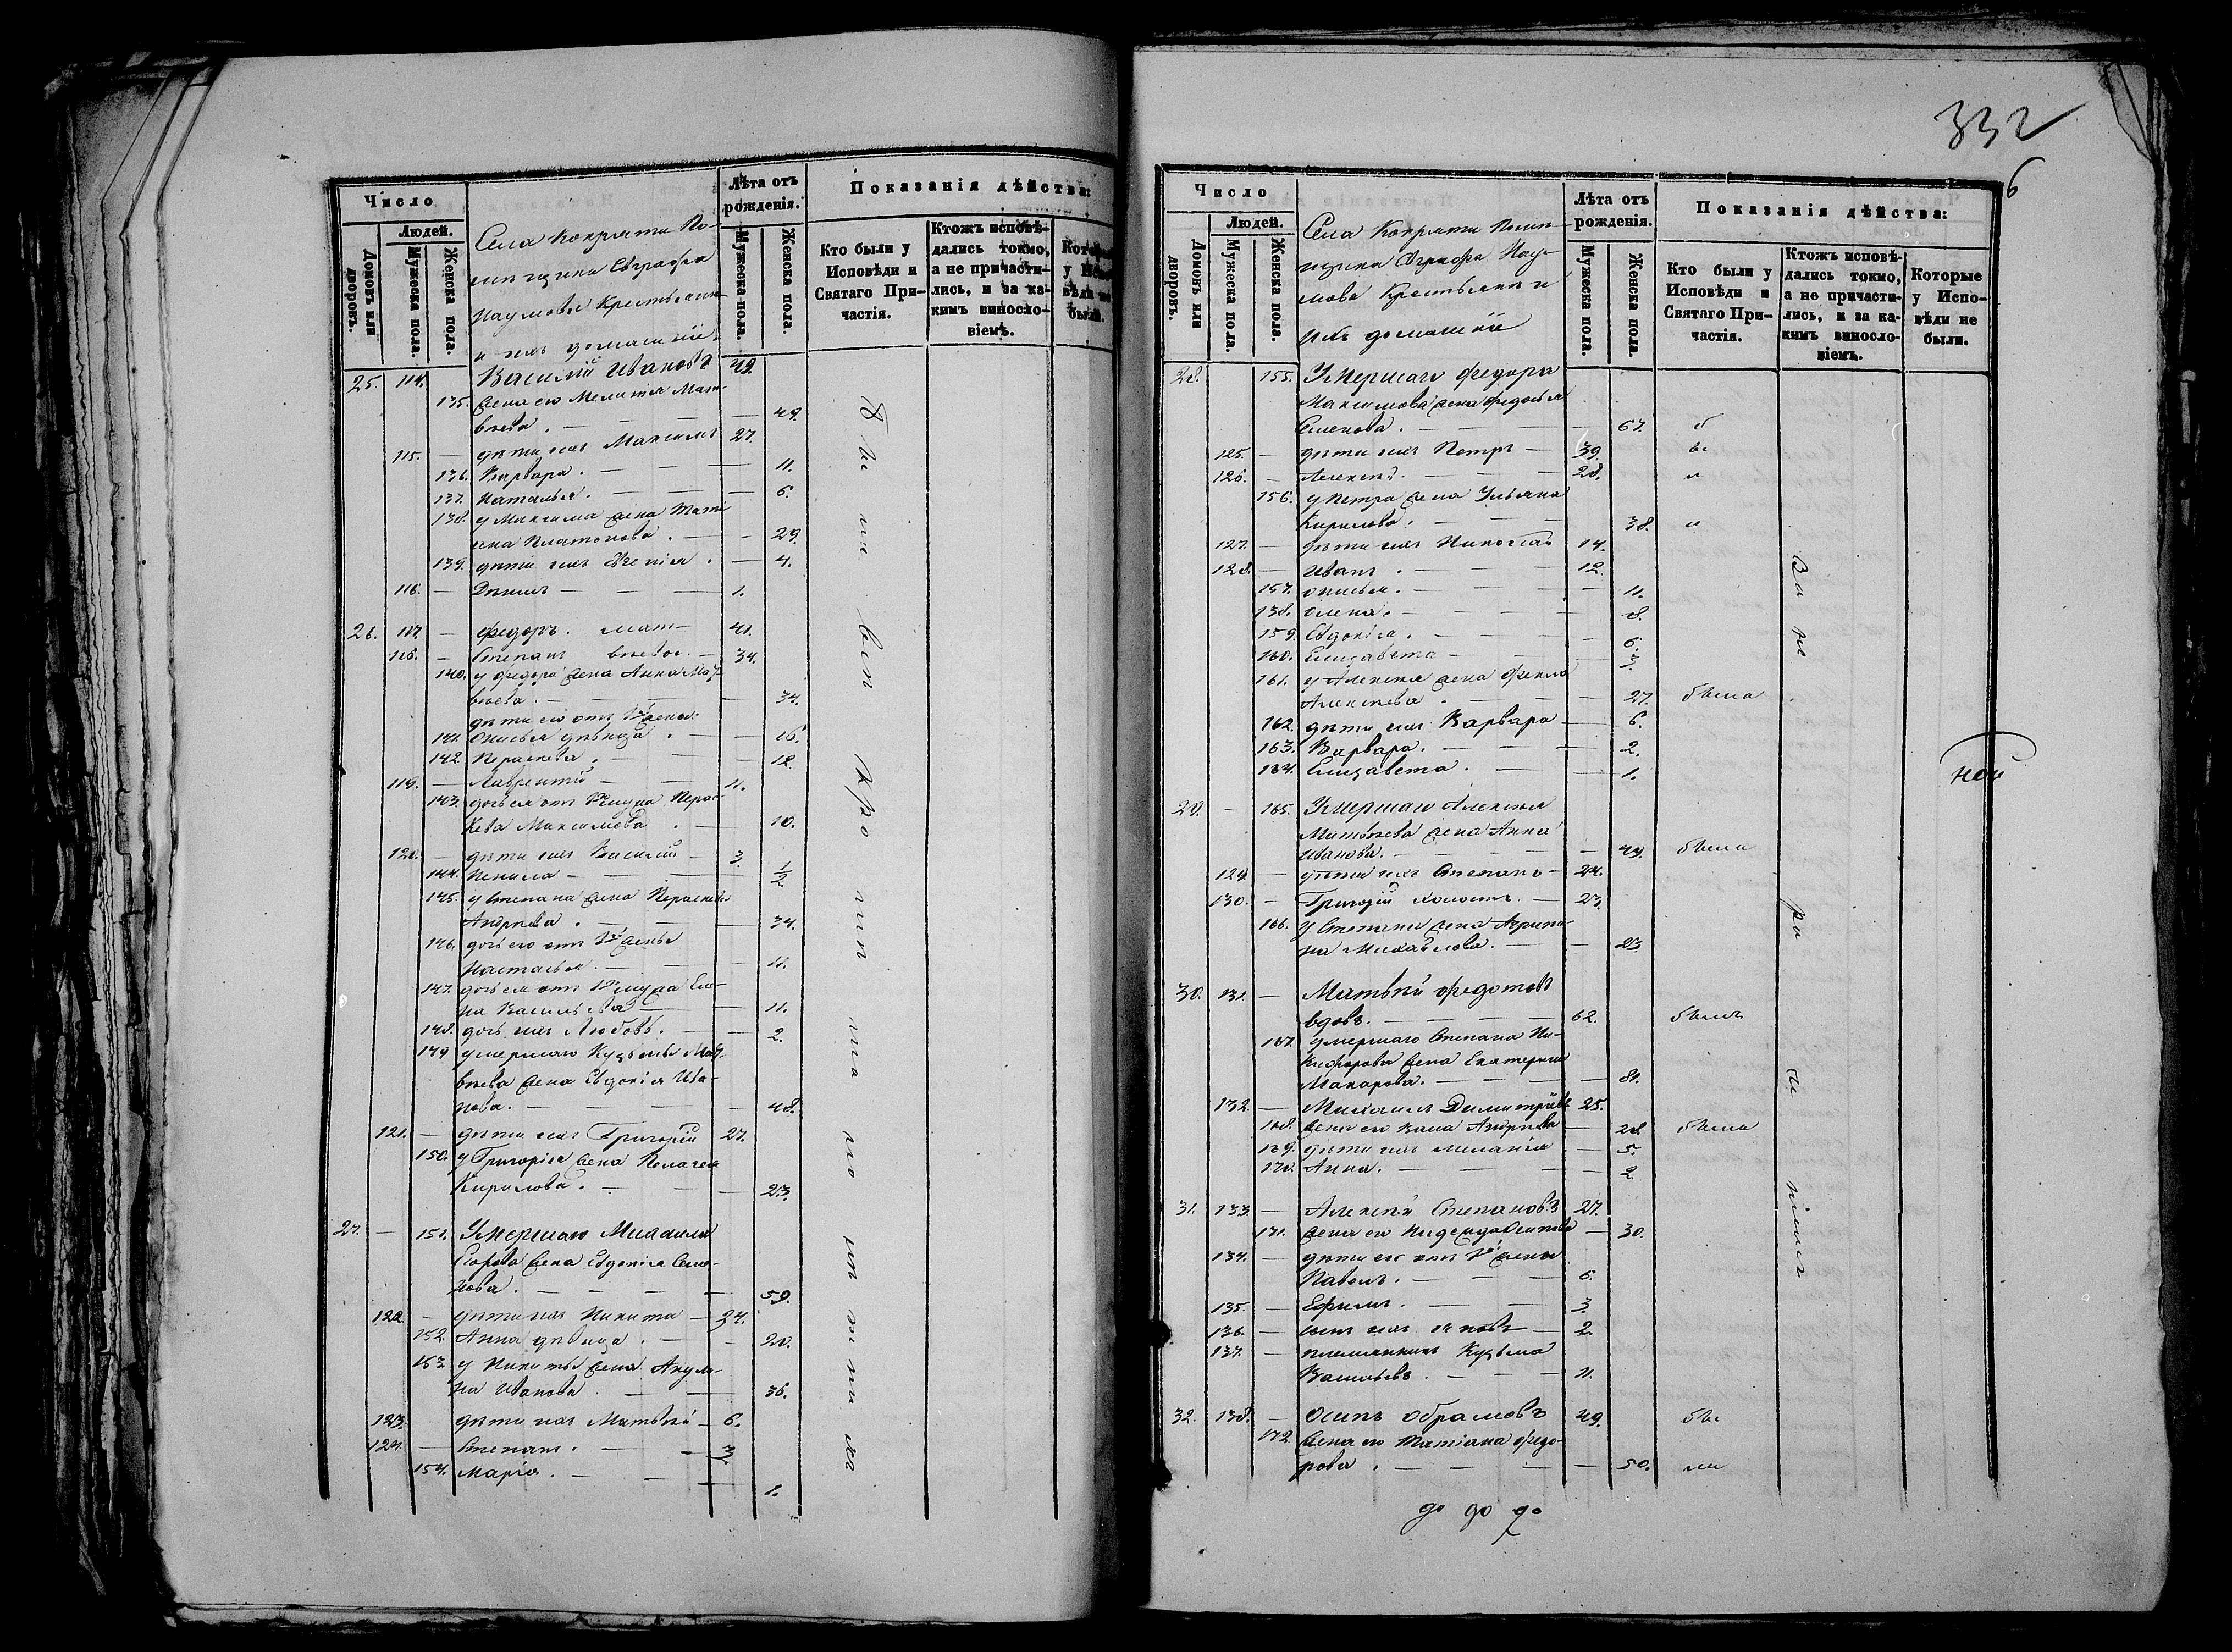 Число
Людей.
Домовъ или дворовъ.
Мужеска пола.
Женска пола.
Села Кокряти По-
мѣщика Евграфа
Наумова Крестьяне
и ихъ домашніи
Лѣта отъ рожденія.
Мужеска пола.
Женска пола.
Показанія дѣйства:
Кто были у Исповѣди и Святаго Причастія.
Ктожъ исповѣдались токмо, а не причастились, и за какимъ винословіемъ.
Которые у Исповѣди не были.
25. 114. Василій Ивановъ 49.
135. Жена его Мелитія Мат-
вѣева. — 49.
115. — дѣти ихъ Максимъ 27.
136. Варвара. — 11.
137. Наталья. — 6.
138. у Максима жена Тати-
яна Платонова. — 29.
139. дѣти ихъ Евгенія. — 4.
116. — — 1.
26. 117. — Федоръ. Мат- 41.
118. — Степанъ вѣевы. — 34.
140. у Федора жена Анна Мат-
вѣева. — 34.
дѣти его отъ 1й жены
141. Анисья дѣвица. — 16.
142. Параскева. — 12.
119. — Лаврентій — 11.
143. дочь ея отъ 1го мужа Парас-
кева Максимова. — 10.
120. — дѣти ихъ Василій — 3.
144. — 1/2
145. у Степана жена Параскева
Андреева. — 34.
146. дочь его отъ 1й жены
Настасья. — 11.
147. дочь ея отъ 1го мужа Еле-
на Васильева — 11.
148. дочь ихъ Любовь. — 2.
149 умершаго Кузьмы Мат-
вѣева жена Евдокія Ива-
нова. — 48.
121. — дѣти ихъ Григорій 27.
150. у Григорія жена Пелагея
Кирилова. — 23.
27. — 151. Умершаго Михаила
Егорова жена Евдокія Семе-
нова. — 59.
122. — дѣти ихъ Никита — 24.
152. Анна дѣвица. — 20.
153. у Никиты жена Акули-
на Иванова. — 36.
123. дѣти ихъ Матвѣй — 6.
124. — Степанъ. — 3.
154. Марія. — 1.
332
6
Число
Людей.
Домовъ или дворовъ.
Мужеска пола.
Женска пола.
Села Кокряти Помѣ-
щика Евграфа Нау-
мова Крестьяне и
ихъ домашніи
Лѣта отъ рожденія.
Мужеска пола.
Женска пола.
Показанія дѣйства:
Кто были у Исповѣди и Святаго Причастія.
Ктожъ исповѣдались токмо, а не причастились, и за какимъ винословіемъ.
Которые у Исповѣди не были.
28. 155. Умершаго Федора
Максимова жена Федосья
Семенова. — 67. б
125. — дѣти ихъ Петръ — 39. ы
126. — Алексѣй. — 28. л
156. у Петра жена Ульяна
Кирилова. — 38. и
127. — дѣти ихъ Николай 14.
128. — Иванъ. — 12.
157. Анисья. — 11.
158. Олена. — 8.
159. Евдокія. — 6.
160. Елизавета —
161. у Алексѣя жена Фекла
Алексѣева. — 27. была
162. дѣти ихъ Варвара — 6.
163. Варвара. — 2.
164. Елизавета. — 1.
29. — 165. Умершаго Алексѣя
Матвѣева жена Анна
Иванова. — 49. была
129. — дѣти ихъ Степанъ — 24.
130. — Григорій холостъ. — 23.
166. у Степана жена Агрипи-
на Михайлова. — 23
30. 131. — Матвѣй Федотовъ
вдовъ. — 62. былъ
167. умершаго Степана Ни-
кифорова жена Екатерина
Макарова. — 81.
132. — Михаилъ Димитріевъ 25.
168. жена его Андреева — 28. была
169. дѣти ихъ Меланія — 5.
170. Анна. — 2
31. 133. — Алексѣй Степановъ 27.
171. жена его — 30.
134. — дѣти его отъ 1й жены
Павелъ. — 6.
135. — Ефимъ. — 3
136. — сынъ ихъ Яковъ — 2.
137. — племянникъ Кузьма
Васильевъ. — 11.
32. 138. — Осипъ Обрамовъ 49. бы
172. жена его Татіана Федо-
рова. — 50. ли
до до до